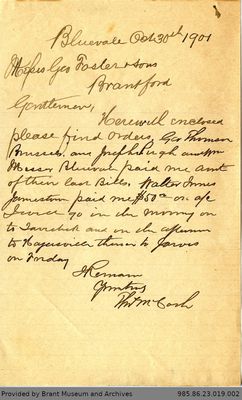 Bluevale Oct 30th 1901
Messrs Geo Foster & Sons
Brantford
Gentlemen,
Herewith enclosed
please find Orders, Geo Thomson
Brussels, and Joseph Leigh and Wm
Messer Bluevale paid me amt
of their last Bills, Walter Innes
Jamestown paid me $50 00 on a/c
I go in the morning on
to Tavistock and on the afternoon
to Hagersville thence to Jarvis
on Friday
I Remain
Yours
Thos McCosh
Provided by Brant Museum and Archives 985.86.23.019.002